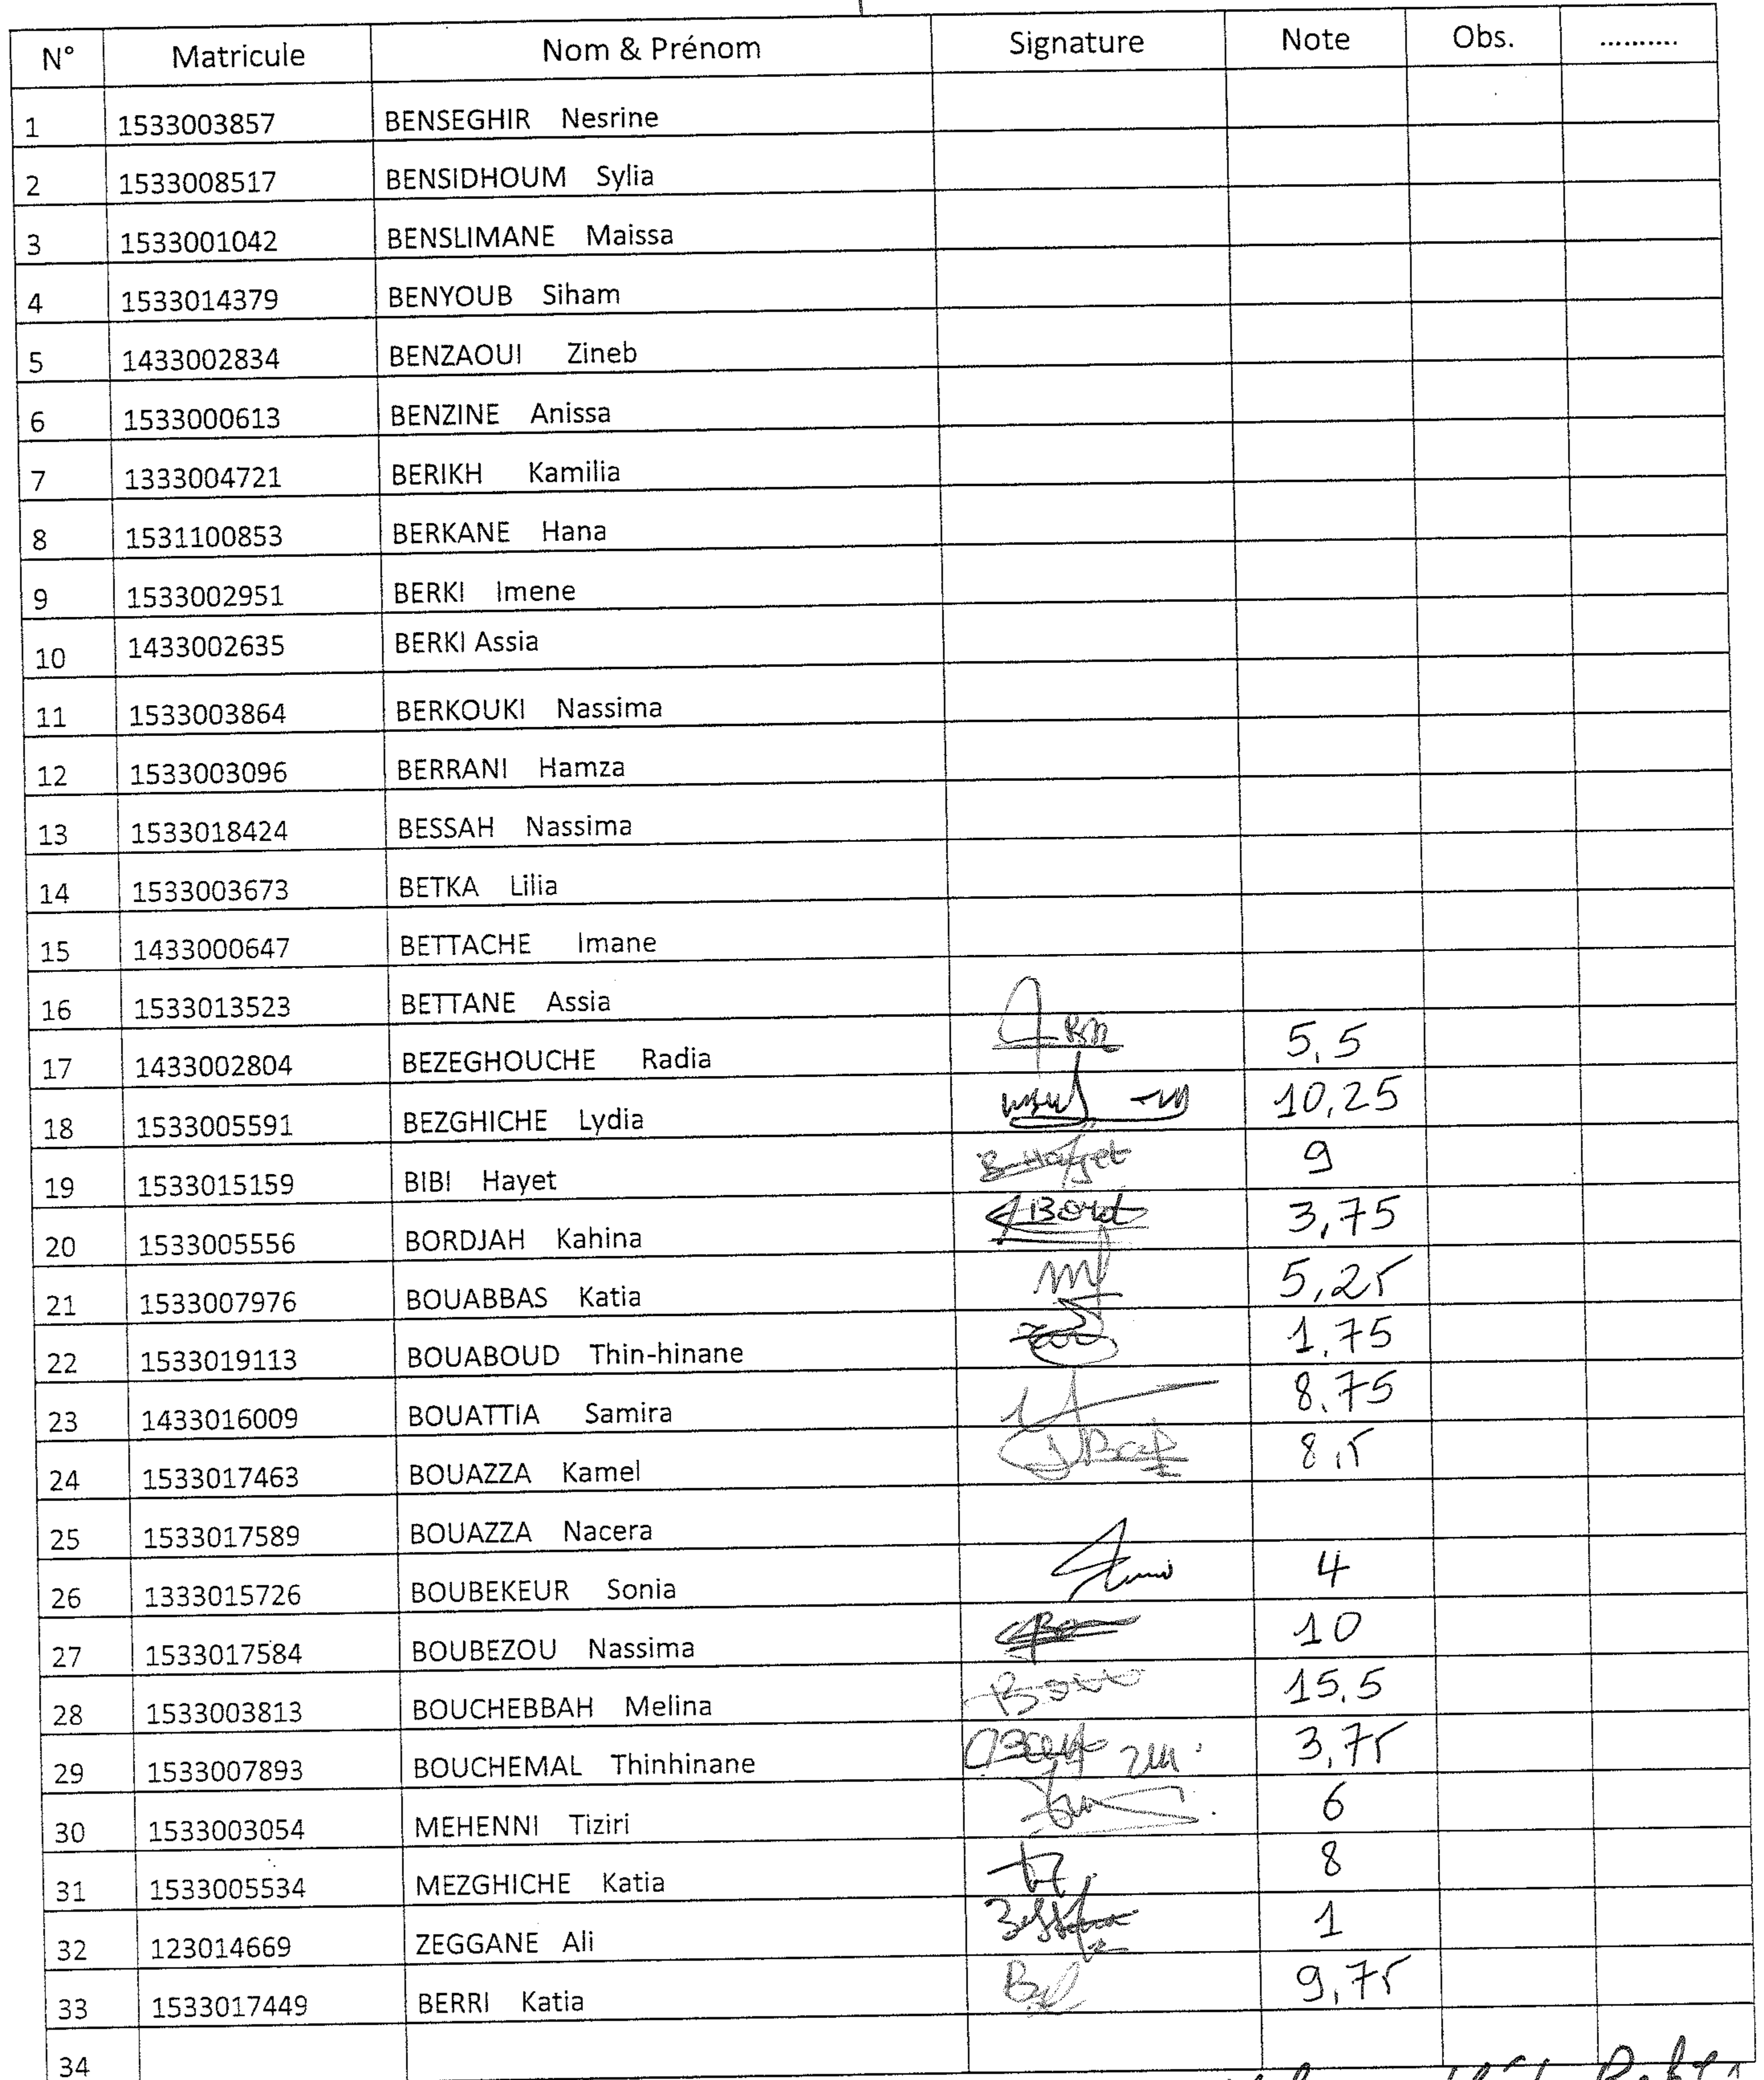 N° Matricule Nom & Prénom Signature Note Obs. ..........
1 1533003857 BENSEGHIR Nesrine
2 1533008517 BENSIDHOUM Sylia
3 1533001042 BENSLIMANE Maissa
4 1533014379 BENYOUB Siham
5 1433002834 BENZAOUI Zineb
6 1533000613 BENZINE Anissa
7 1333004721 BERIKH Kamilia
8 1531100853 BERKANE Hana
9 1533002951 BERKI Imene
10 1433002635 BERKI Assia
11 1533003864 BERKOUKI Nassima
12 1533003096 BERRANI Hamza
13 1533018424 BESSAH Nassima
14 1533003673 BETKA Lilia
15 1433000647 BETTACHE Imane
16 1533013523 BETTANE Assia
17 1433002804 BEZEGHOUCHE Radia 5,5
18 1533005591 BEZGHICHE Lydia 10,25
19 1533015159 BIBI Hayet 9
20 1533005556 BORDJAH Kahina 3,75
21 1533007976 BOUABBAS Katia 5,25
22 1533019113 BOUABOUD Thin-hinane 1,75
23 1433016009 BOUATTIA Samira 8,75
24 1533017463 BOUAZZA Kamel 8,5
25 1533017589 BOUAZZA Nacera
26 1333015726 BOUBEKEUR Sonia 4
27 1533017584 BOUBEZOU Nassima 10
28 1533003813 BOUCHEBBAH Melina 15,5
29 1533007893 BOUCHEMAL Thinhinane 3,75
30 1533003054 MEHENNI Tiziri 6
31 1533005534 MEZGHICHE Katia 8
32 123014669 ZEGGANE Ali 1
33 1533017449 BERRI Katia 9,75
34